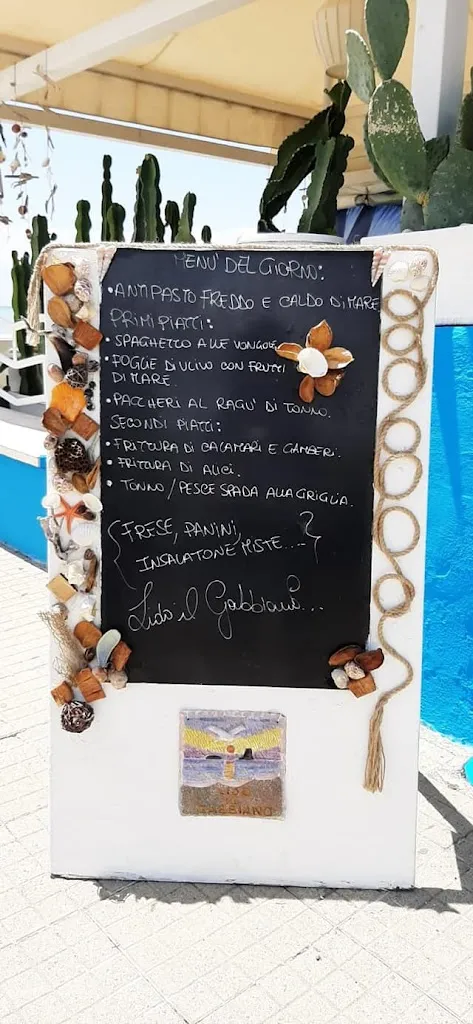 MENU' DEL GIORNO:
• ANTIPASTO FREDDO E CALDO DI MARE
PRIMI PIATTI:
• SPAGHETTO ALLE VONGOLE
• FOGLIE DI ULIVO CON FRUTTI
DI MARE.
• PACCHERI AL RAGU' DI TONNO.
SECONDI PIATTI:
• FRITTURA DI CALAMARI E GAMBERI.
• FRITTURA DI ALICI.
• TONNO / PESCE SPADA ALLA GRIGLIA.
{FRESE, PANINI,
INSALATONE MISTE....}
Lido il Gabbiano...
LIDO
IL
GABBIANO